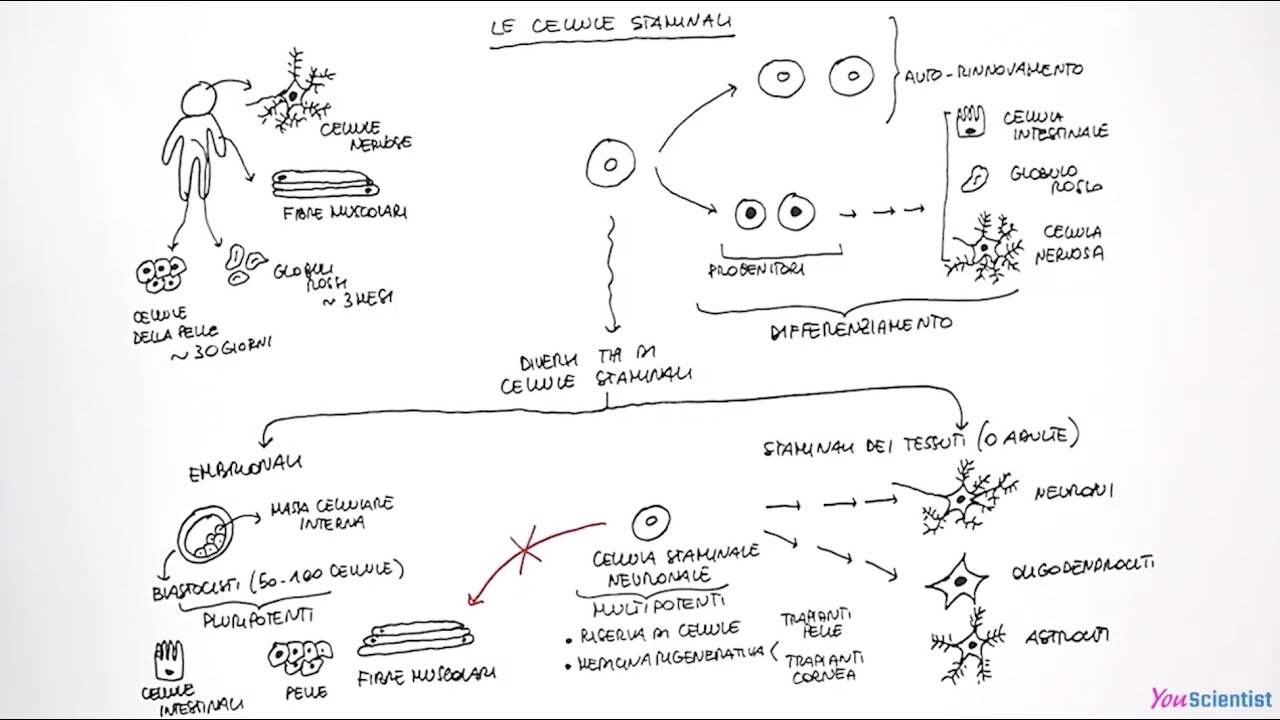 LE CELLULE STAMINALI
CELLULE
NERVOSE
FIBRE MUSCOLARI
GLOBULI
ROSSI
~ 3 MESI
CELLULE
DELLA PELLE
~ 30 GIORNI
AUTO-RINNOVAMENTO
CELLULA
INTESTINALE
GLOBULO
ROSSO
CELLULA
NERVOSA
PROGENITORI
DIFFERENZIAMENTO
DIVERSI TIPI DI
CELLULE STAMINALI
EMBRIONALI
MASSA CELLULARE
INTERNA
BLASTOCISTI (50-100 CELLULE)
PLURIPOTENTI
CELLULE
INTESTINALI
PELLE
FIBRE MUSCOLARI
STAMINALI DEI TESSUTI (O ADULTE)
CELLULA STAMINALE
NEURONALE
MULTIPOTENTI
• RISERVA DI CELLULE
• MEDICINA RIGENERATIVA <
TRAPIANTI
PELLE
TRAPIANTI
CORNEA
NEURONI
OLIGODENDROCITI
ASTROCITI
YouScientist